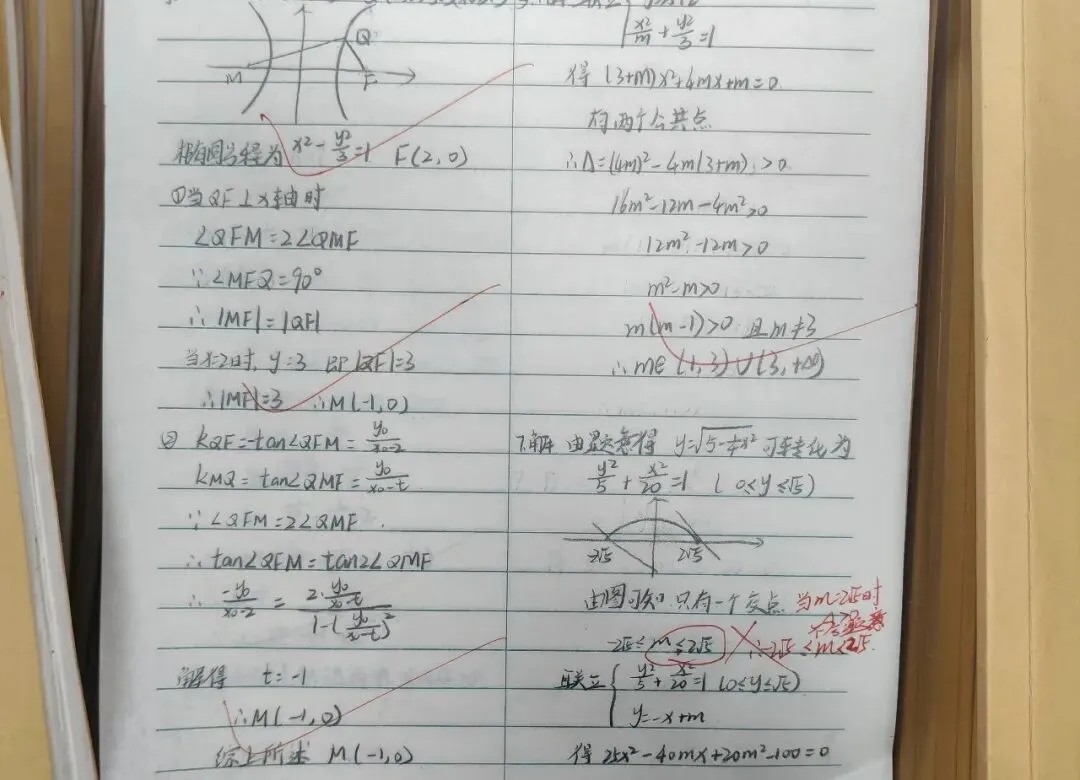 Q
M
F
双曲线方程为 x²-y²/3=1 F(2,0)
①当QF⊥x轴时
∠QFM=2∠QMF
∵∠MFQ=90°
∴|MF|=|QF|
当x=2时, y=3 即|QF|=3
∴|MF|=3 ∴M(-1,0)
② kQF=-tan∠QFM=y₀/(x₀-2)
kMQ=tan∠QMF=y₀/(x₀-t)
∵∠QFM=2∠QMF.
∴tan∠QFM=tan2∠QMF
∴ -y₀/(x₀-2) = (2·y₀/(x₀-t))/(1-(y₀/(x₀-t))²)
解得 t=-1
∴M(-1,0)
综上所述 M(-1,0)
x²/m+y²/3=1
得 (3+m)x²+4mx+m=0
有两个公共点
∴Δ=(4m)²-4m(3+m)>0
16m²-12m-4m²>0
12m²-12m>0
m²-m>0
m(m-1)>0 且m≠3
∴m∈(1,3)∪(3,+∞)
7.解 由题意得 y=√(5-¼x²) 可转化为
y²/5+x²/20=1 (0≤y≤√5)
-2√5 2√5
由图可知 只有一个交点 当m=2√5时
不合题意
-2√5≤m≤2√5 ∴-2√5≤m<2√5
联立{ y²/5+x²/20=1 (0≤y≤√5)
y=-x+m
得 25x²-40mx+20m²-100=0